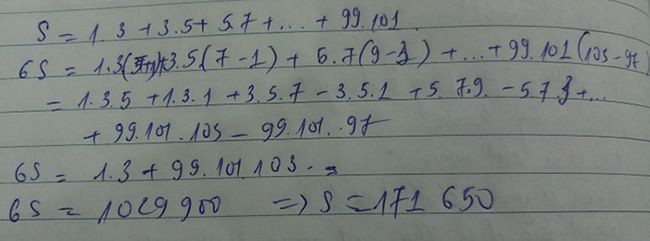 S = 1.3 + 3.5 + 5.7 + ... + 99.101
6S = 1.3(5+1)+3.5(7-1) + 5.7(9-3) + ... + 99.101(103-97)
= 1.3.5 + 1.3.1 + 3.5.7 - 3.5.1 + 5.7.9. - 5.7.3 + ...
+ 99.101.103 - 99.101.97
6S = 1.3 + 99.101.103.
6S = 1029900 => S = 171 650